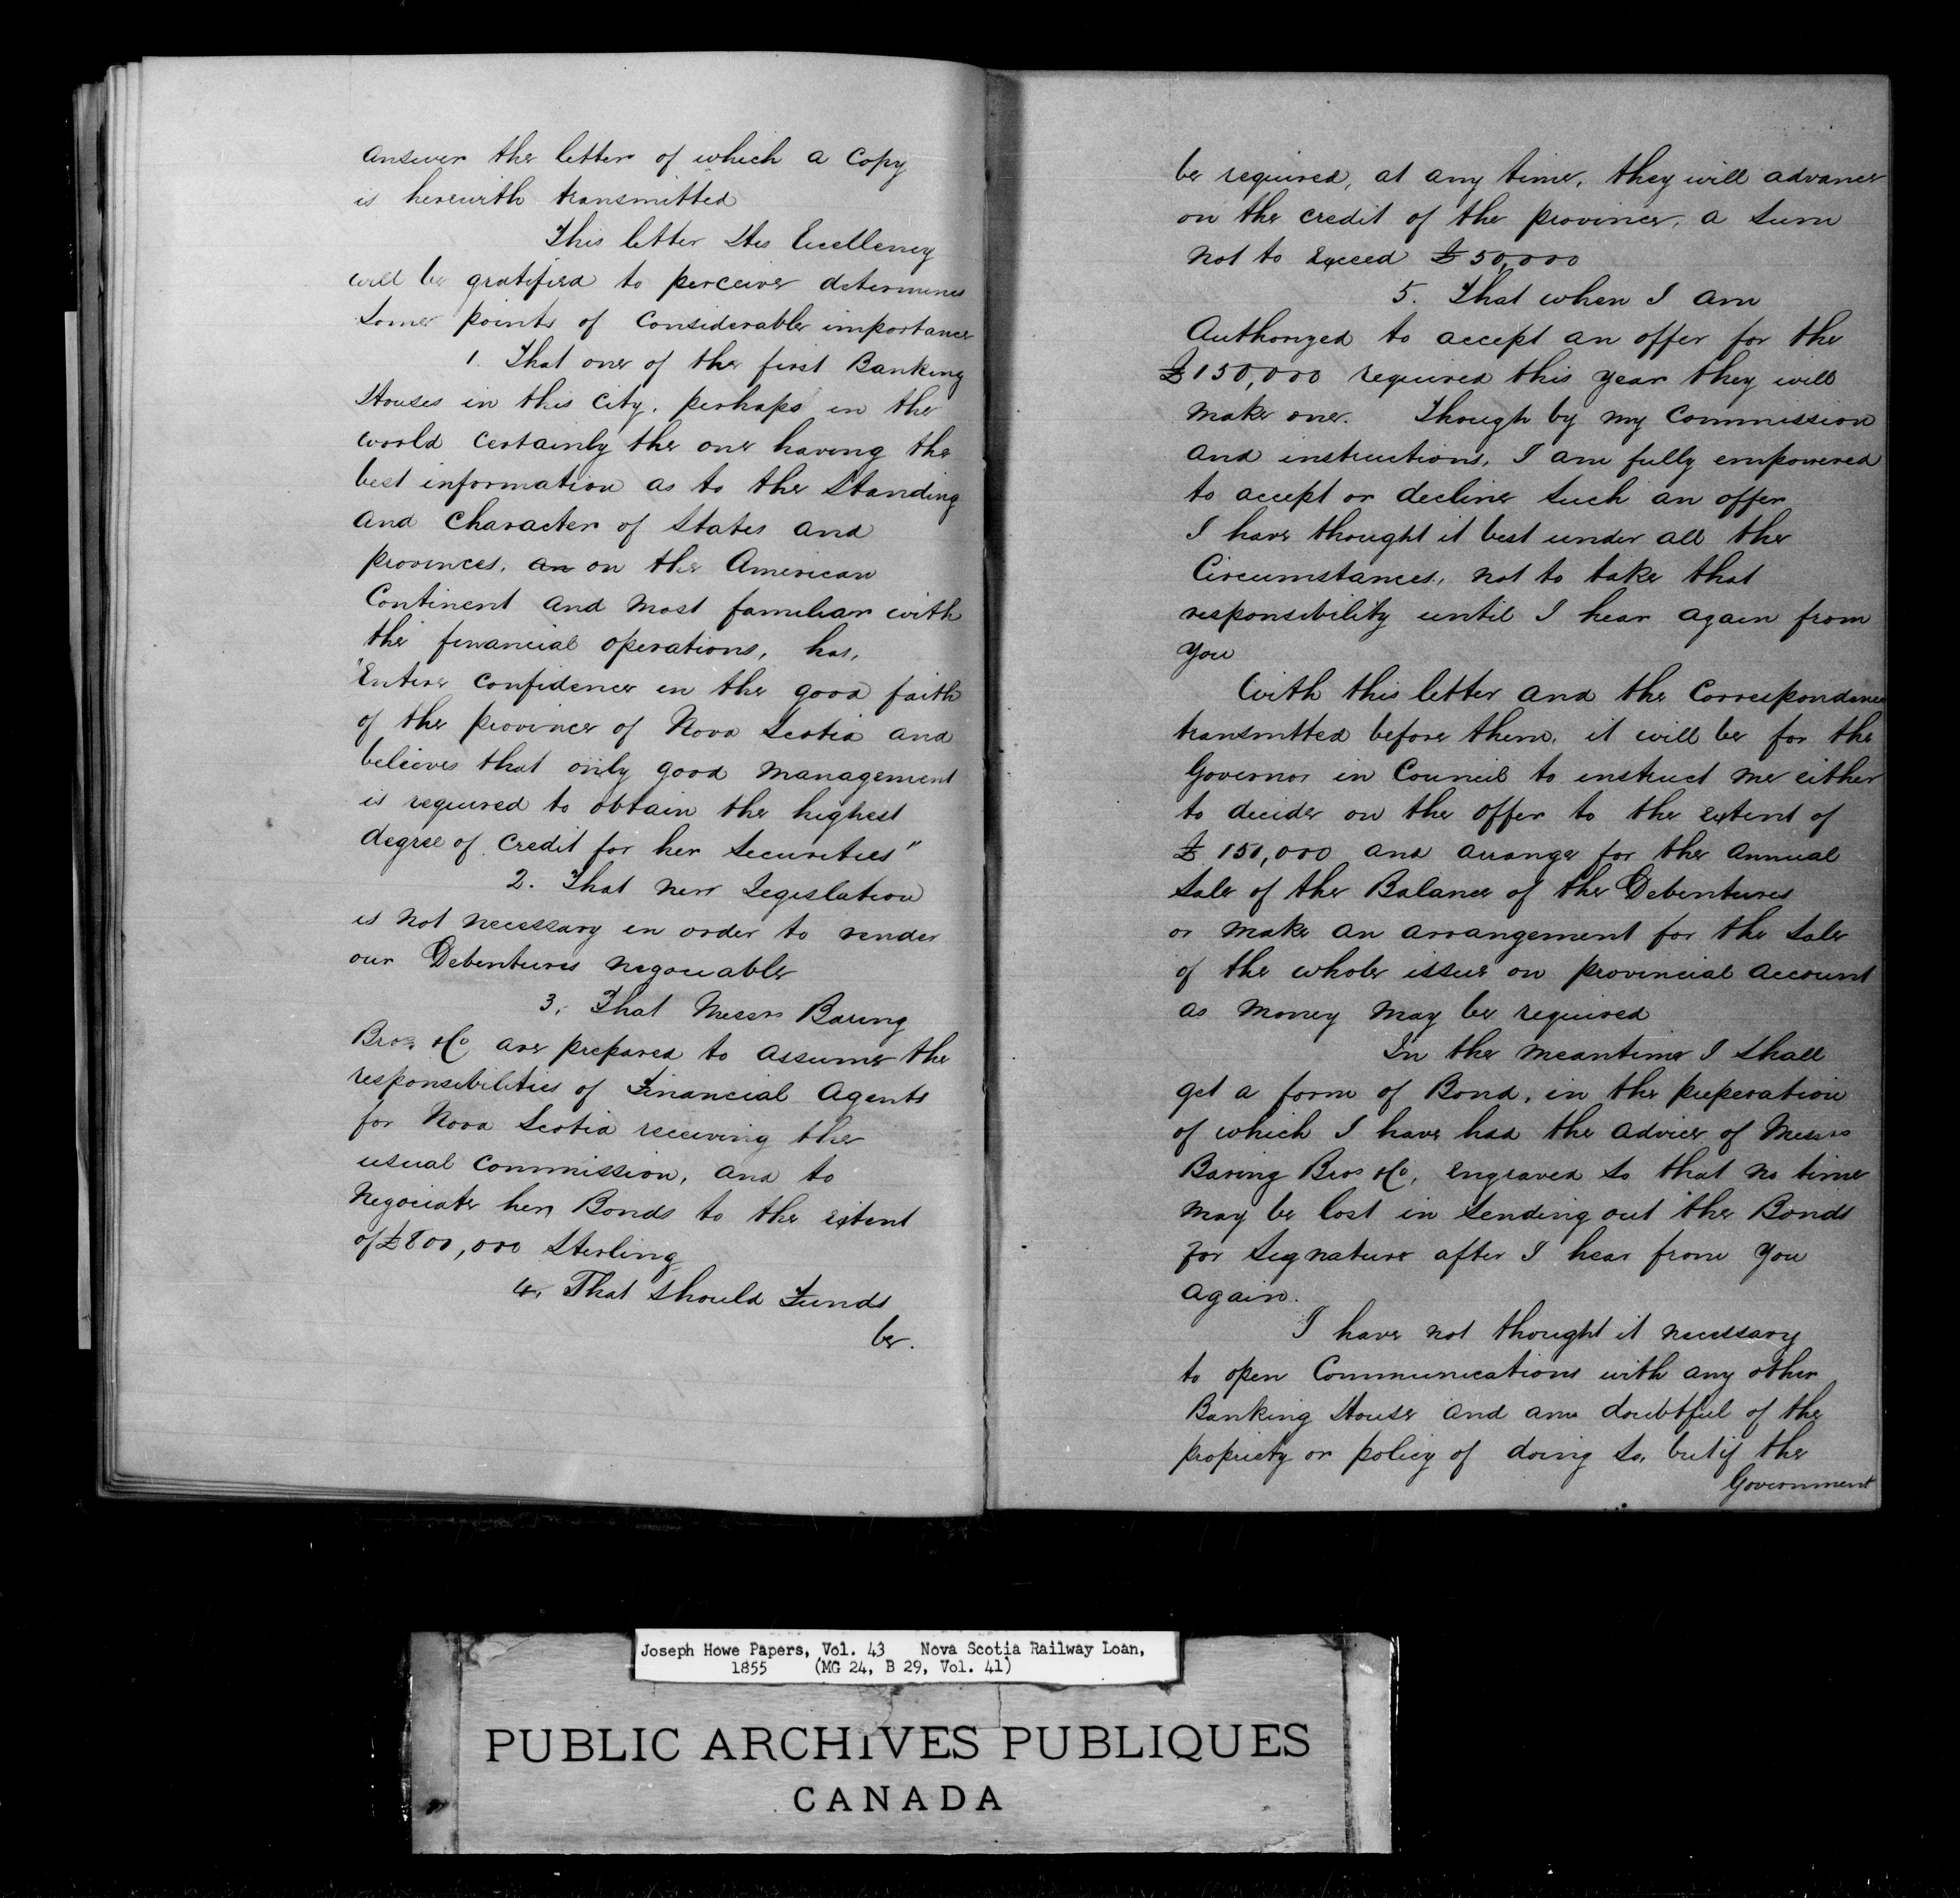 answer the letter of which a Copy
is herewith transmitted
This letter His Excellency
will be gratified to perceive determines
some points of considerable importance
1. That one of the first Banking
Houses in this City, perhaps in the
world certainly the one having the
best information as to the Standing
and Character of States and
provinces, an on the American
Continent and most familiar with
the financial operations, has,
"Entire confidence in the good faith
of the province of Nova Scotia and
believes that only good management
is required to obtain the highest
degree of credit for her Securities"
2. That new Legislation
is not necessary in order to render
our Debentures negociable
3. That Messrs Baring
Bros. & Co are prepared to assume the
responsibilities of Financial Agents
for Nova Scotia receiving the
usual commission, and to
Negociate her Bonds to the extent
of £800,000 Sterling
4. That should Funds
be.
be required, at any time, they will advance
on the credit of the province, a sum
not to Exceed £50,000
5. That when I am
Authorized to accept an offer for the
£150,000 required this year they will
make one. Though by my Commission
and instructions, I am fully empowered
to accept or decline such an offer
I have thought it best under all the
Circumstances, not to take that
responsibility until I hear again from
you
With this letter and the Correspondence
transmitted before them, it will be for the
Governor in Council to instruct me either
to decide on the offer to the extent of
£150,000 and arrange for the annual
Sale of the Balance of the Debentures
or make an arrangement for the sale
of the whole issue on provincial account
as money may be required
In the meantime I shall
get a form of Bond, in the preperation
of which I have had the advice of Messrs
Baring Bros & Co, engraved so that no time
may be lost in sending out the Bonds
for signature after I hear from you
again.
I have not thought it necessary
to open Communications with any other
Banking House and am doubtful of the
propriety or policy of doing so, but if the
Government
Joseph Howe Papers, Vol. 43 Nova Scotia Railway Loan,
1855 (MG 24, B 29, Vol. 41)
PUBLIC ARCHIVES PUBLIQUES
CANADA